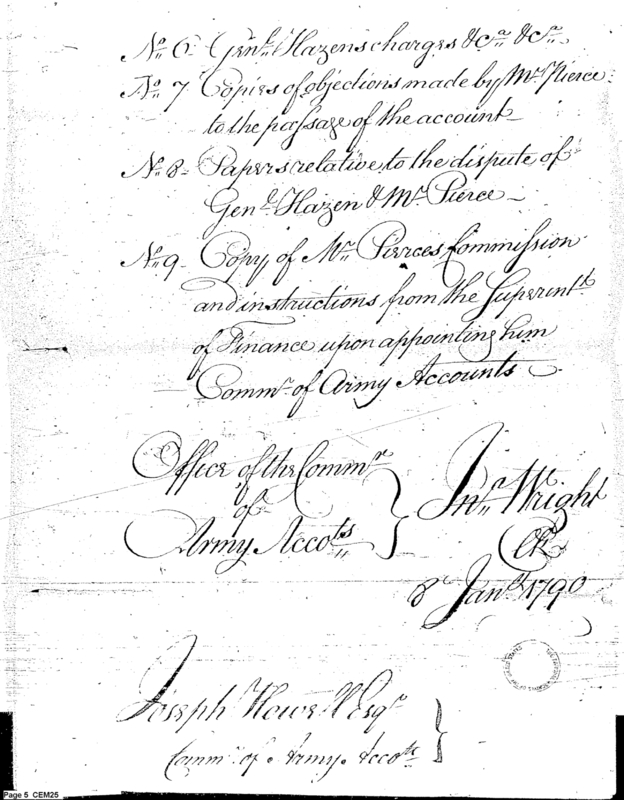 No. 6. Genl. Hazens charges &ca &ca.
No. 7 Copies of objections made by Mr. Pierce
to the passage of the account
No. 8. Papers relative to the dispute of
Genl. Hazen & Mr. Pierce
No. 9. Copy of Mr. Pierces Commission
and instructions from the Superintt.
of Finance upon appointing him
Commr. of Army Accounts
Office of the Commr.
of
Army Accots
Jno. Wright
Clk
8 Jany. 1790
Joseph Howell Esqr
Commr. of Army Accots
Page 5 CEM25